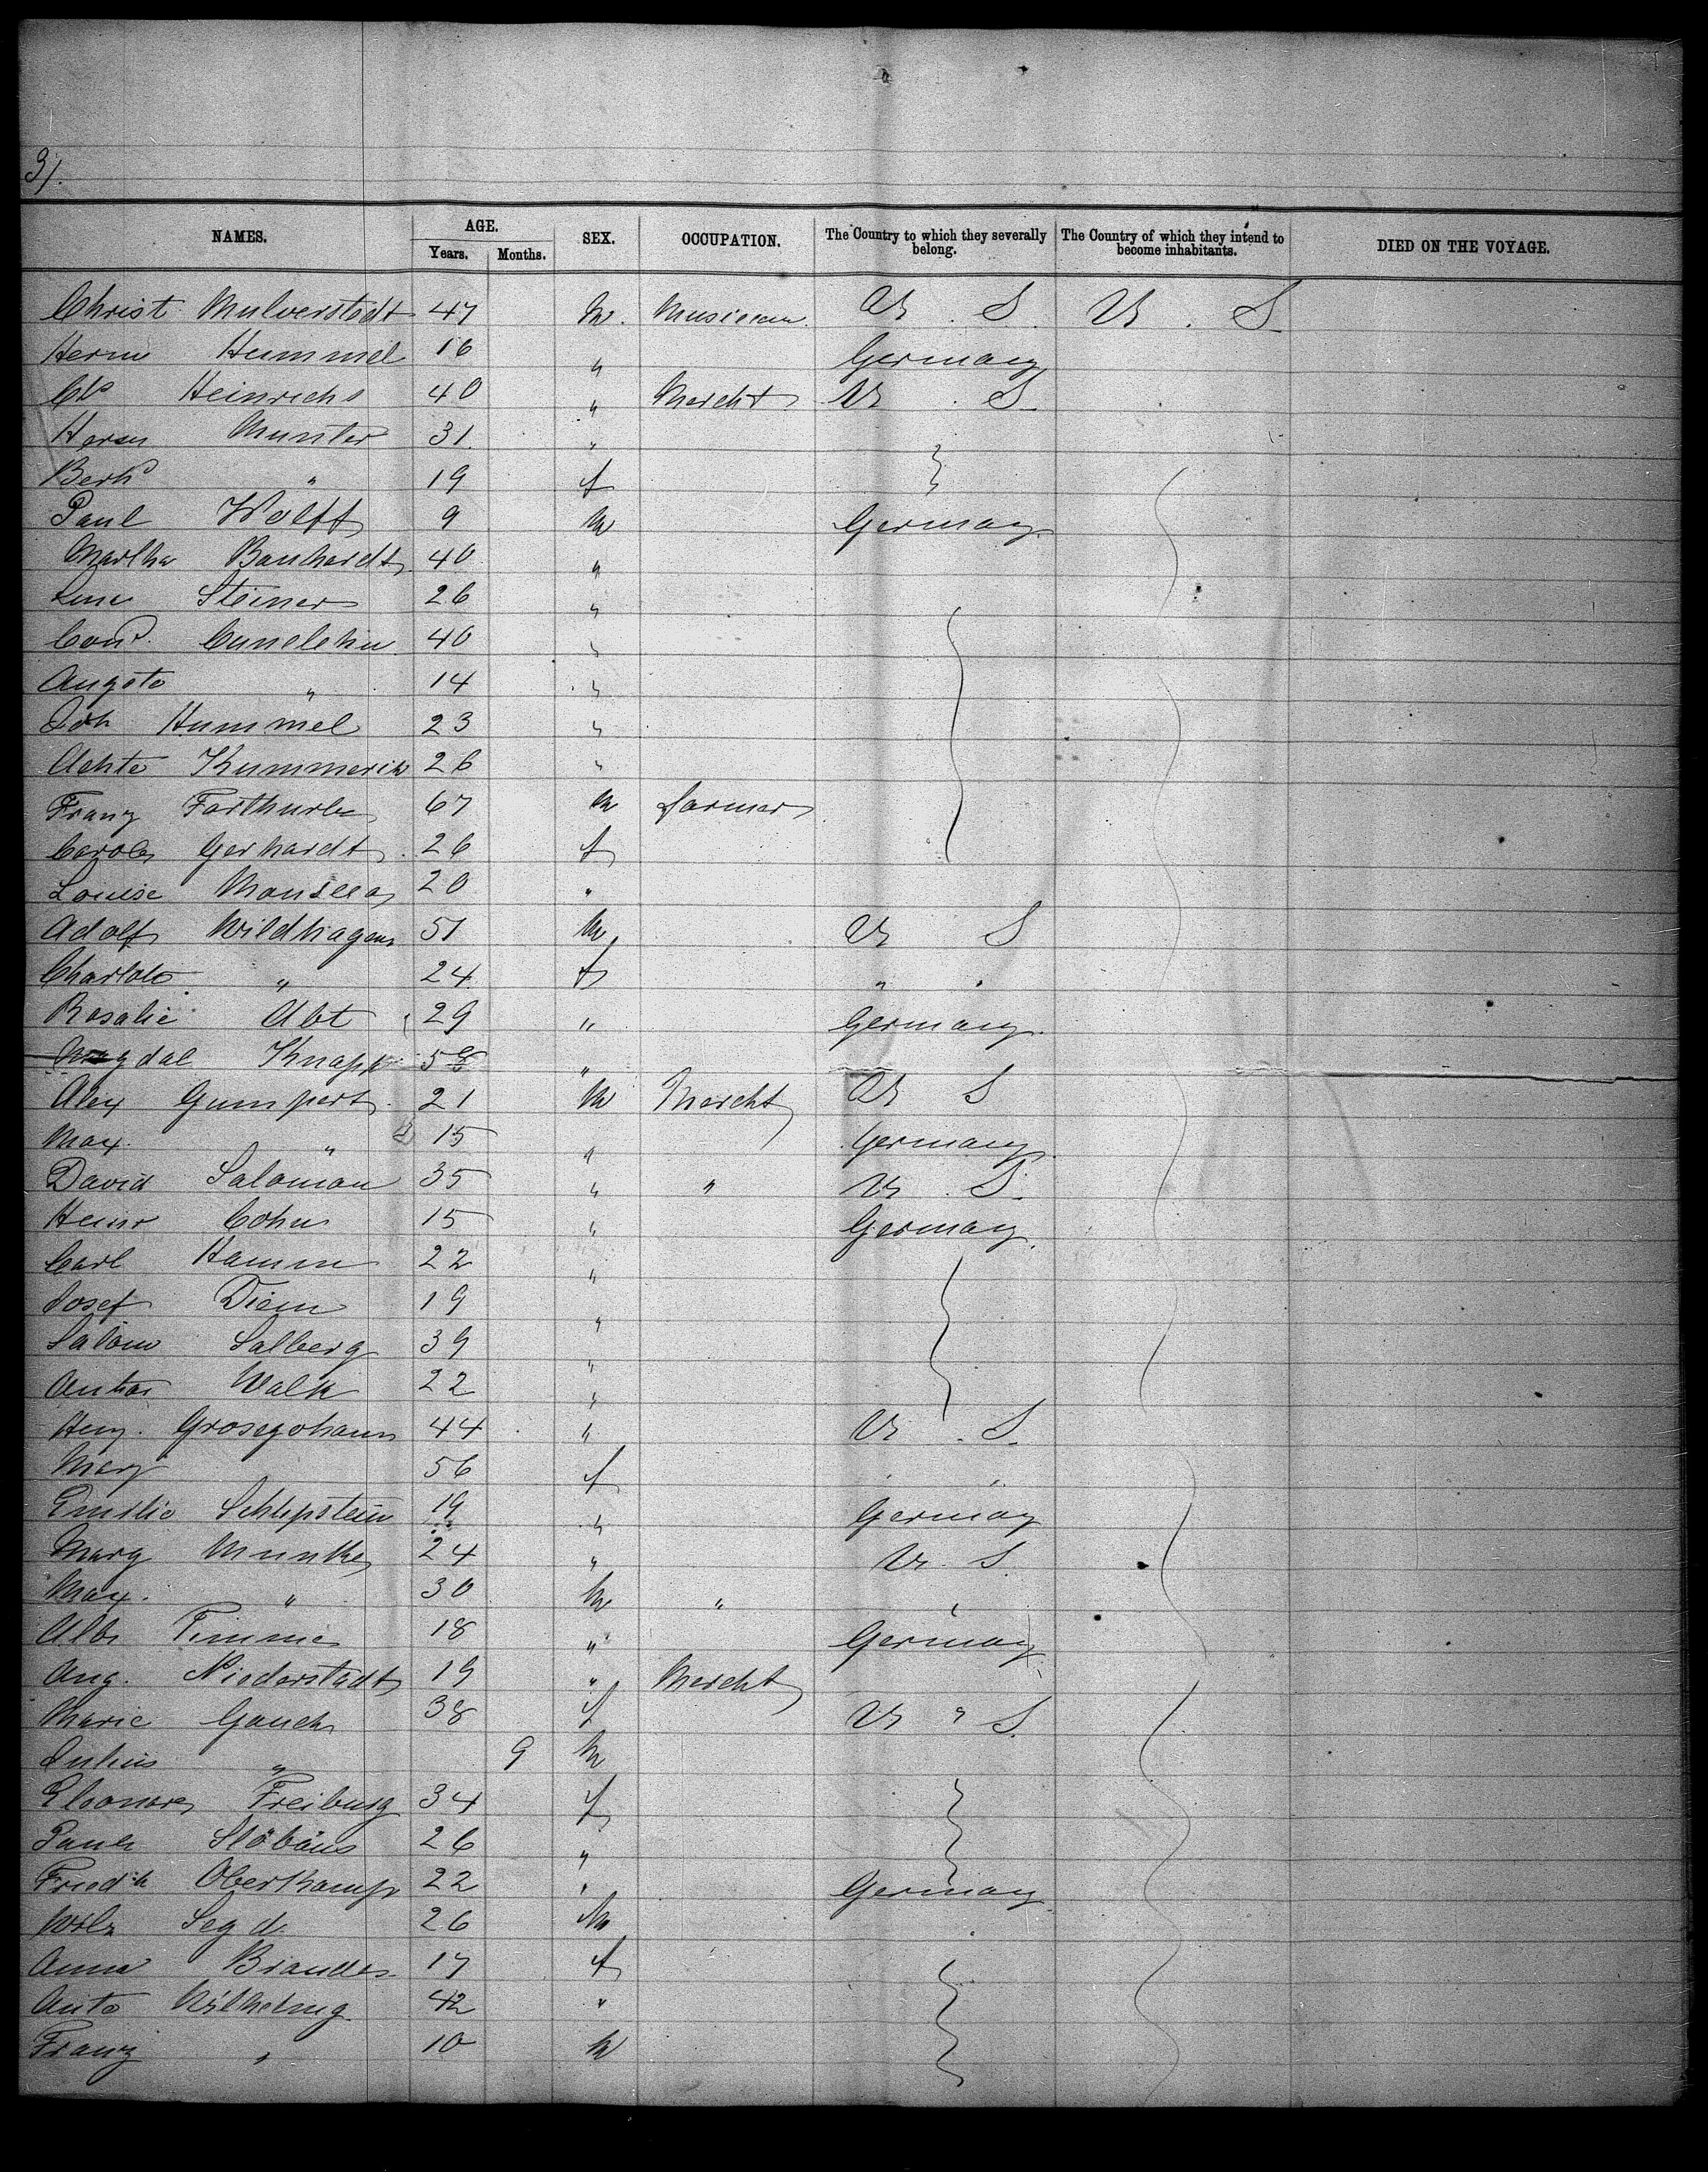 3/.
NAMES. AGE. Years. Months. SEX. OCCUPATION. The Country to which they severally belong. The Country of which they intend to become inhabitants. DIED ON THE VOYAGE.
Christ Mulverstedt 47 M. Musician U. S. U. S
Herm Hummel 16 " Germany
Heinrichs 40 " Mercht U. S.
Herm Munter 31 "
Berth " 19 f
Paul Wolff 9 M Germany
Martha Banhardt 40 "
Lina Steiner 26 "
Cond. 40 "
Augste " 14 "
Joh Hummel 23 "
Kummerik 26 "
Franz 67 M farmer
Carole Gerhardt 26 f
Louise 20 "
Adolf Wildhagen 51 M U S
Charlote " 24 f " "
Rosalie Abt 29 " Germany
Magdal Knapp "
Alex Gumpert 21 M Mercht U S
Max " 15 " Germany
David Salomon 35 " " U. S.
Heinr Cohn 15 " Germany
Carl Hamm 22 "
Josef Diem 19 "
Salom Salberg 39 "
Anton Walk 22 "
Heny. Grosejohann 44 " U. S.
Mary 56 f "
Emilie Schlepstein 19 " Germany
Marg Munke 24 " U. S.
Max. " 30 M " "
Alb Timme 18 " Germany
Aug. Niederstadt 19 " Mercht
Marie Gauch 38 f U " S.
Julius " 9 M
Eleonore Freiburg 34 f
Paul 26 "
Friedk Oberkamp 22 " Germany
26 M
Anna Brandes 17 f
Anto 42 "
Franz " 10 M